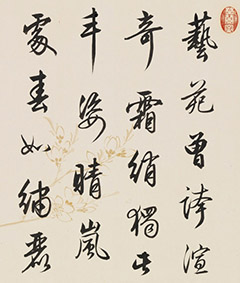 藝苑曾誇渲
奇霜綃獨
丰姿晴嵐
處春如繡麗